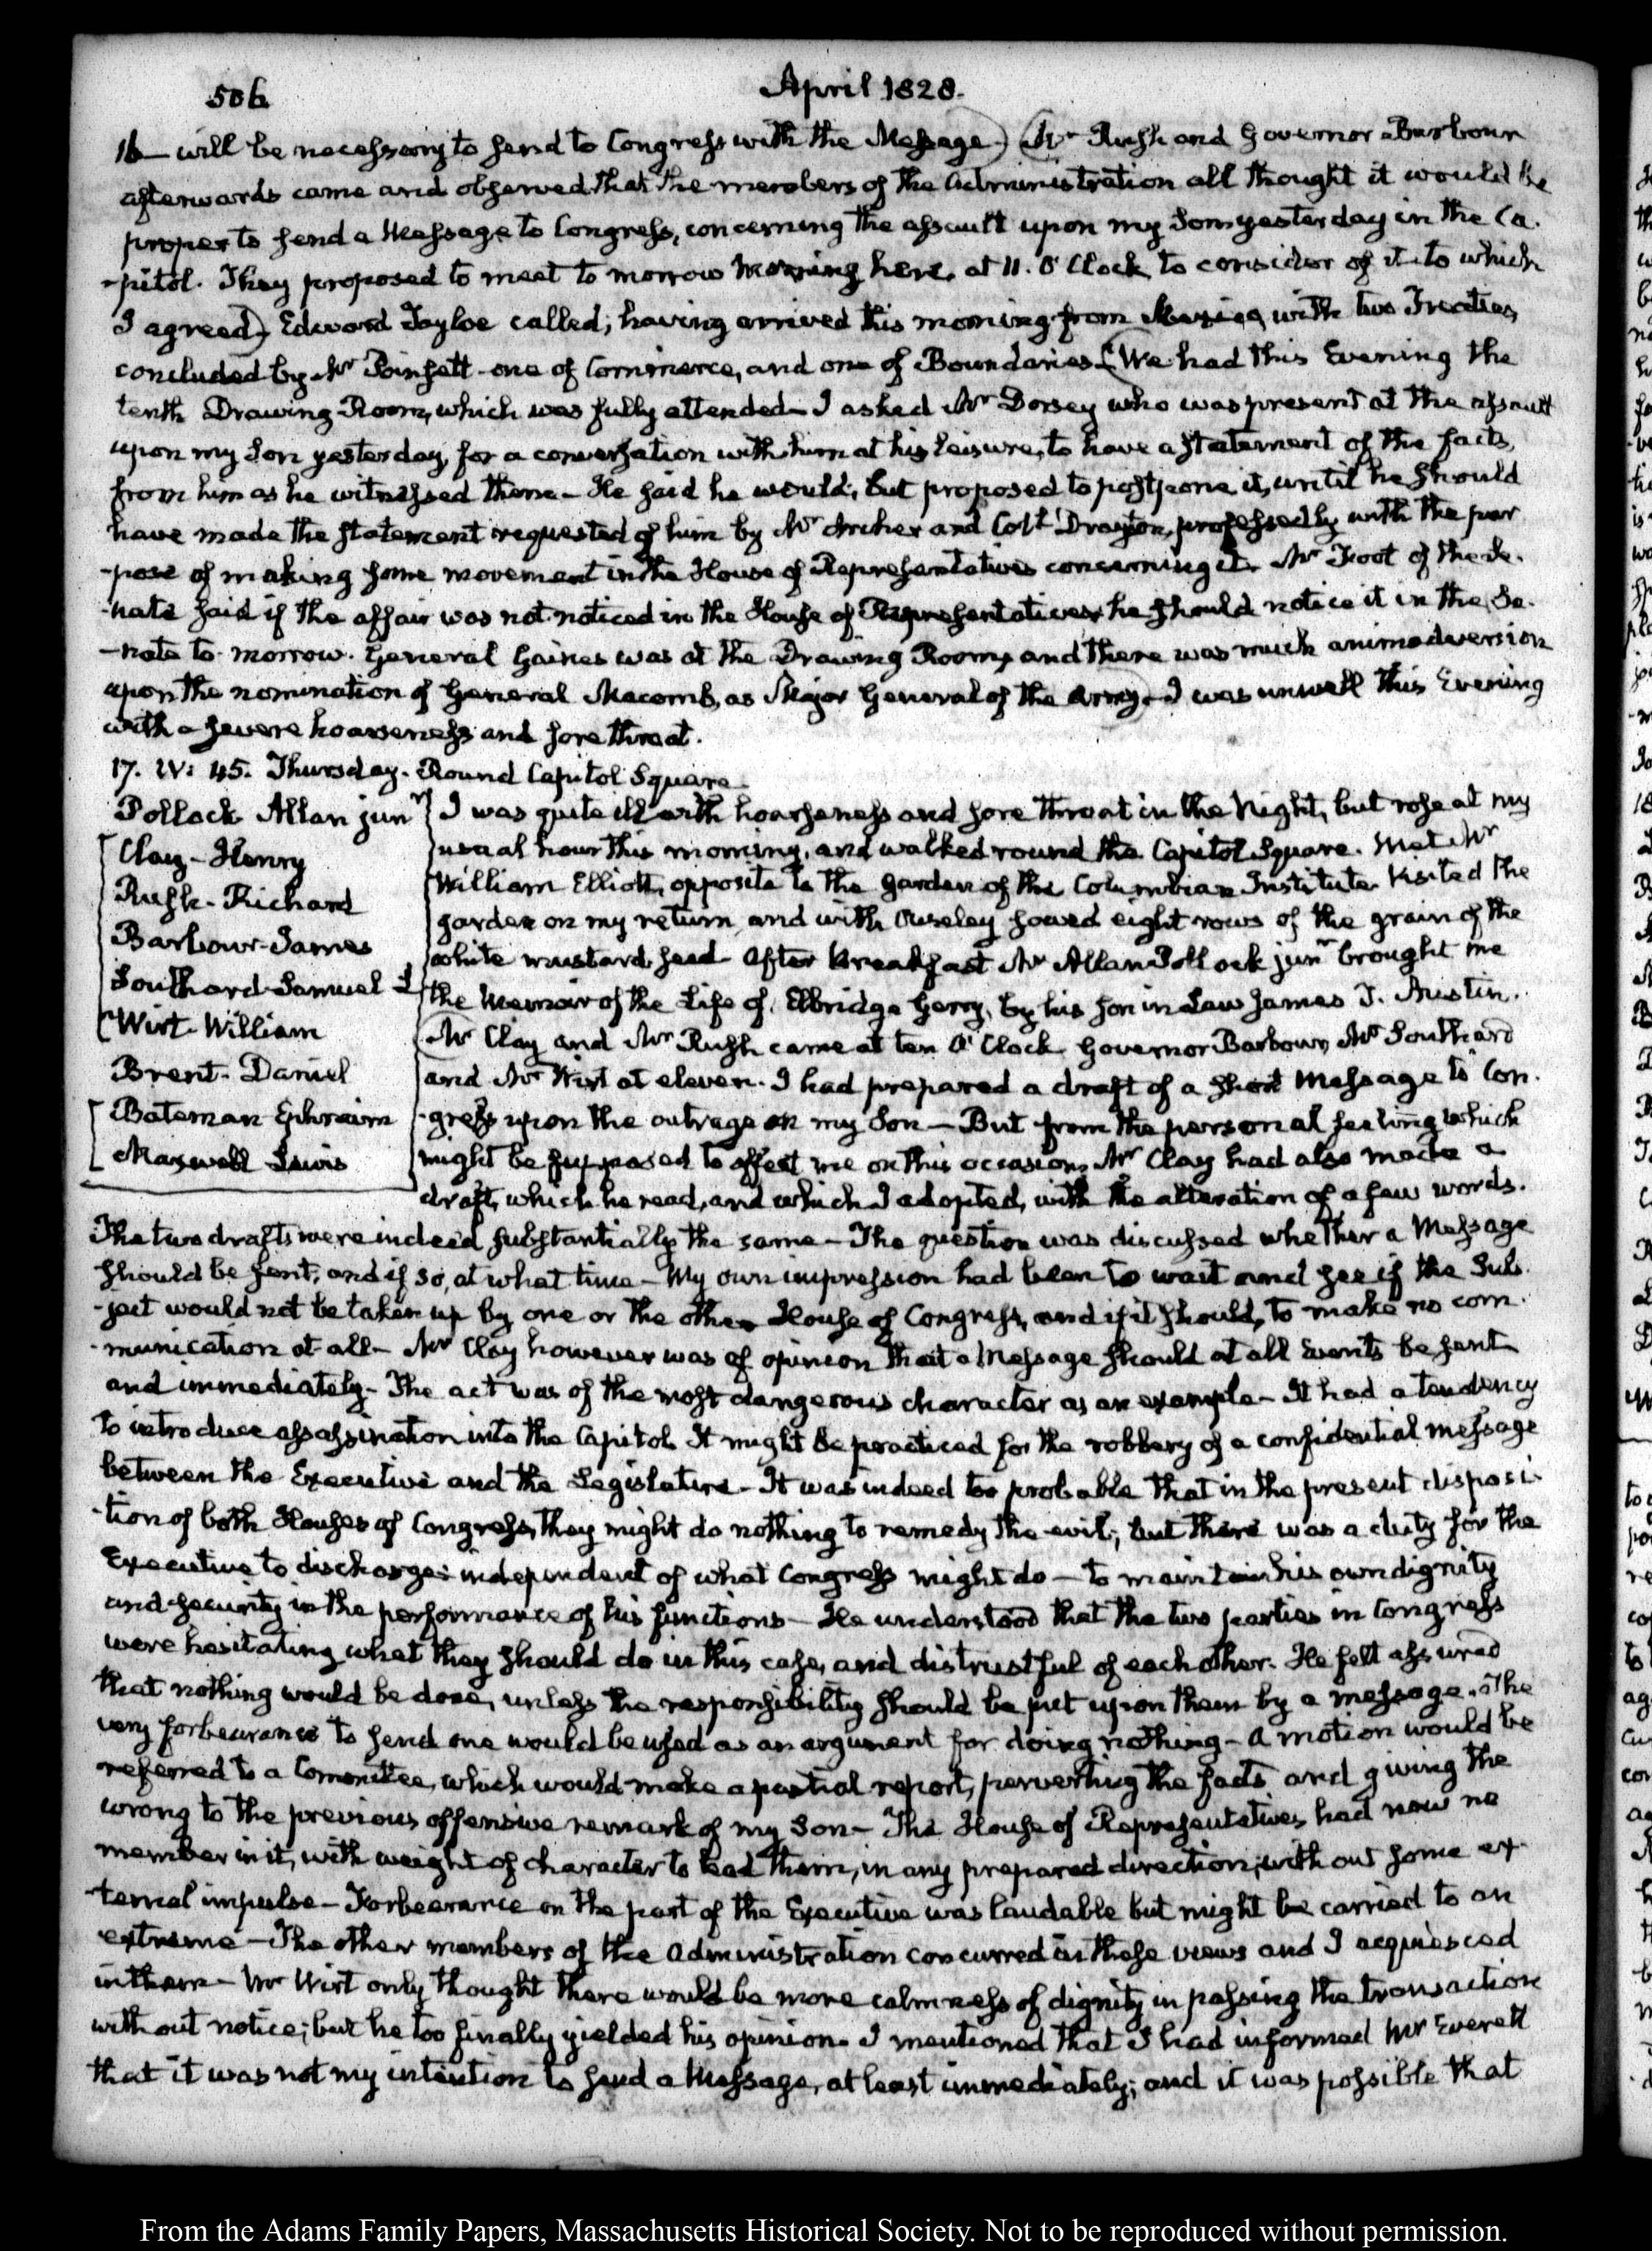 506
April 1828.
16 — will be necessary to send to Congress with the Message) (Mr Rush and Governor Barbour
afterwards came and observed that the members of the Administration all thought it would be
proper to send a Message to Congress, concerning the assault upon my Son yesterday in the Ca-
-pitol. They proposed to meet to morrow morning here, at 11. O'Clock to consider of it to which
I agreed) Edward Tayloe called; having arrived this morning from Mexico, with two Treaties,
concluded by Mr Poinsett one of Commerce, and one of Boundaries — (We had this Evening the
tenth Drawing Room, which was fully attended — I asked Mr Dorsey who was present at the assault
upon my Son yesterday, for a conversation with him at his leisure, to have a statement of the facts,
from him as he witnessed them — He said he would, but proposed to postpone it, until he should
have made the statement requested of him by Mr Archer and Coll Drayton, professedly with the pur
-pose of making some movement in the House of Representatives concerning it. Mr Foot of the Se-
-nate said if the affair was not noticed in the House of Representatives he should notice it in the Se-
-nate to-morrow. General Gaines was at the Drawing Room, and there was much animadversion
upon the nomination of General Macomb, as Major General of the Army.) I was unwell this Evening
with a severe hoarseness and sore throat.
17. IV: 45. Thursday. Round Capitol Square
Pollock Allan junr
Clay - Henry
Rush - Richard
Barbour - James
Southard Samuel L
Wirt - William
Brent - Daniel
Bateman Ephraim
Maxwell Lewis
I was quite ill with hoarseness and sore throat in the Night, but rose at my
usual hour this morning, and walked round the Capitol Square. Met Mr
William Elliott, opposite to the garden of the Columbian Institute. Visited the
garden on my return, and with Ouseley sowed eight rows of the grain of the
white mustard seed. After breakfast Mr Allan Pollock junr brought me
the Memoir of the Life of Elbridge Gerry, by his son in Law James T. Austin.
(Mr Clay and Mr Rush came at ten O'Clock Governor Barbour, Mr Southard
and Mr Wirt at eleven. I had prepared a draft of a short Message to Con-
-gress upon the outrage on my Son — But from the personal feeling which
might be supposed to affect me on this occasion, Mr Clay had also made a
draft, which he read, and which I adopted, with the alteration of a few words.
The two drafts were indeed substantially the same — The question was discussed whether a Message
should be sent, and if so, at what time — My own impression had been to wait and see if the Sub-
-ject would not be taken up by one or the other House of Congress, and if it should, to make no com-
-munication at all — Mr Clay however was of opinion that a Message should at all Events be sent
and immediately — The act was of the most dangerous character as an example — It had a tendency
to introduce assassination into the Capitol. It might be practiced for the robbery of a confidential message
between the Executive and the Legislature — It was indeed too probable that in the present disposi-
-tion of both Houses of Congress, they might do nothing to remedy the evil; but there was a duty for the
Executive to discharge independent of what Congress might do — to maintain his own dignity
and security in the performance of his functions — He understood that the two parties in Congress
were hesitating what they should do in this case, and distrustful of each other. He felt assured
that nothing would be done, unless the responsibility should be put upon them by a message. The
very forbearance to send one would be used as an argument for doing nothing — A motion would be
referred to a Committee, which would make a partial report, perverting the facts and giving the
wrong to the previous offensive remark of my Son — The House of Representatives had now no
member in it, with weight of character to lead them, in any prepared direction, without some ex-
-ternal impulse — Forbearance on the part of the Executive was laudable but might be carried to an
extreme — The other members of the Administration concurred in these views and I acquiesced
in them — Mr Wirt only thought there would be more calmness of dignity in passing the transaction
without notice; but he too finally yielded his opinion. I mentioned that I had informed Mr Everett
that it was not my intention to send a Message, at least immediately; and it was possible that
From the Adams Family Papers, Massachusetts Historical Society. Not to be reproduced without permission.